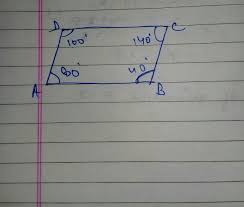 D C
100° 140°
80° 40°
A B